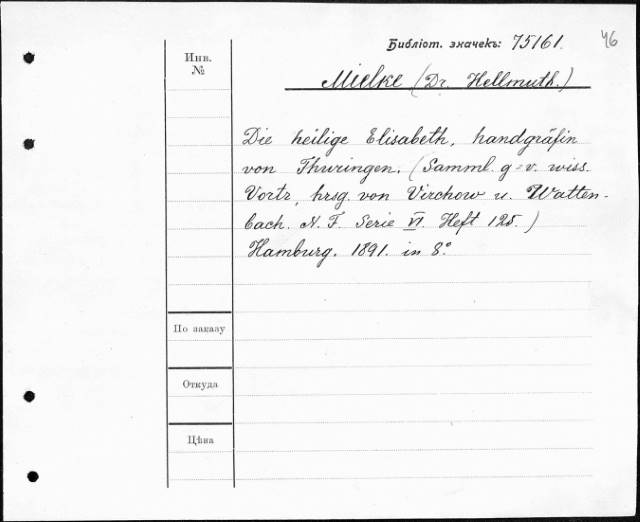 Библіот. значекъ: 75161.
46
Инв.
№
Mielke (Dr. Hellmuth.)
Die heilige Elisabeth, handgräfin
von Thuringen. (Samml. g-v. wiss.
Vortr, hrsg. von Virchow u. Watten-
bach. N. F. Serie VI. Heft 125.)
Hamburg. 1891. in 8°
По заказу
Откуда
Цѣна